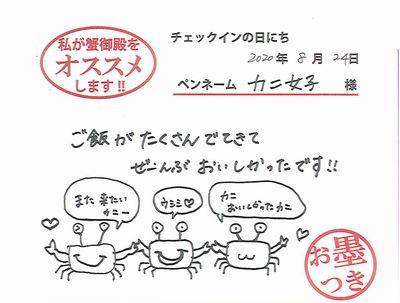 私が蟹御殿を
オススメ
します!!
チェックインの日にち
2020年 8月 24日
ペンネーム カニ女子 様
ご飯がたくさんでてきて
ぜーんぶおいしかったです!!
また来たい
カニー
ウシシ♡
カニ
おいしかったカニ
お墨
つき